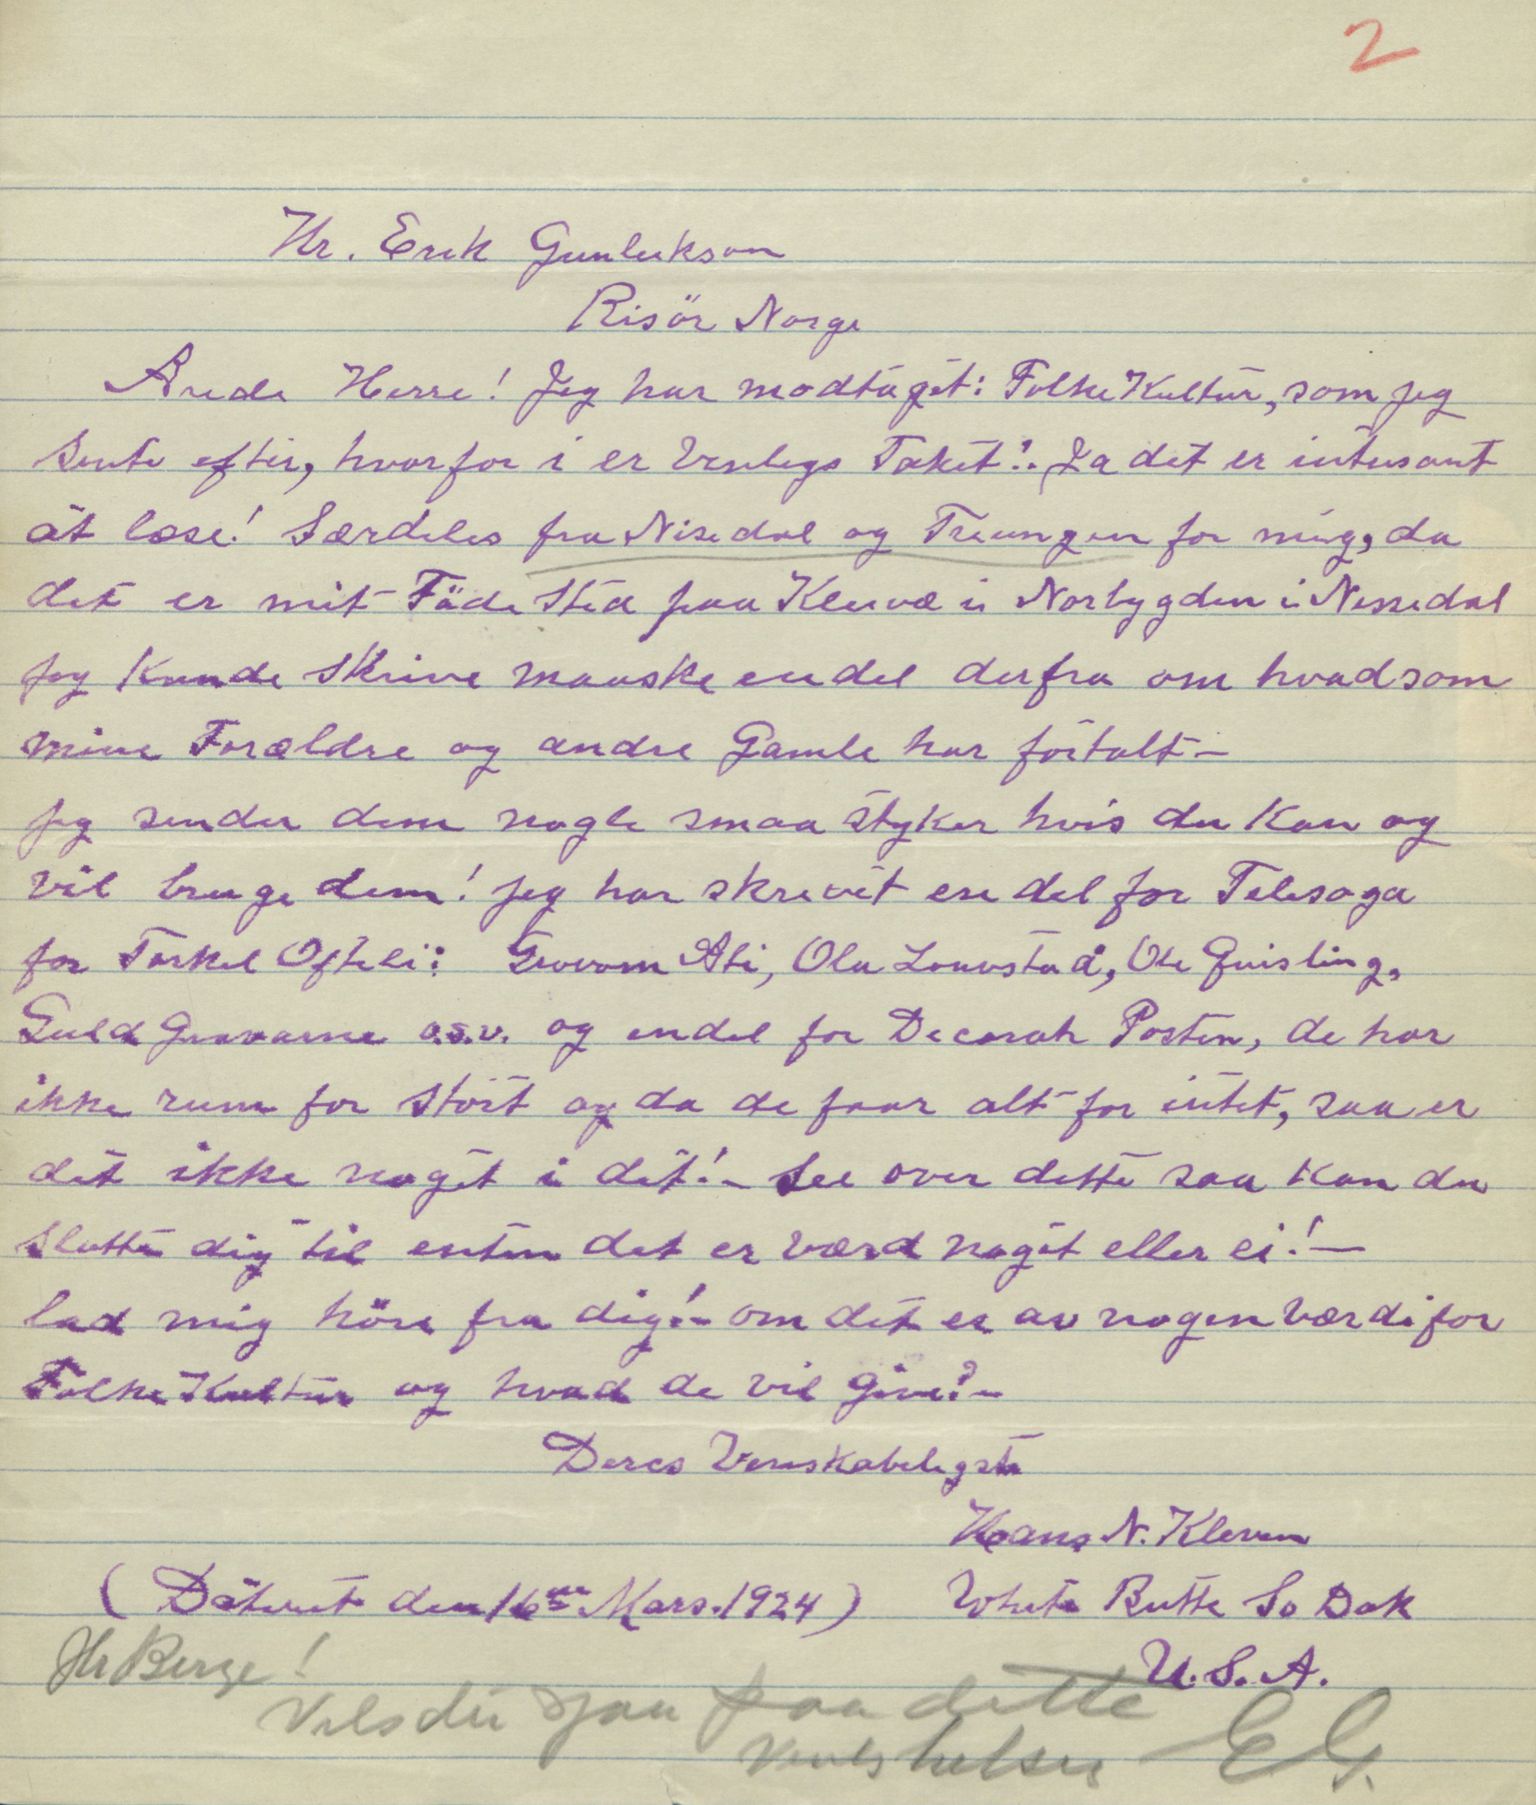 2
Hr. Erik Gunleikson
Risör Norge
Ærede Herre! Jeg har modtaget: Folke Kultur, som jeg
sente efter, hvorfor i er Venligs Taket!. Ja det er intersant
at læse! Særdeles fra Nisedal og Treungen for mig, da
det er mit Föde Sted paa Kleivæ i Norbygden i Nissedal
Jeg Kunde Skrive maaske en del derfra om hvad som
mine Forældre og andre Gamle har fortalt –
Jeg sender dem nogle smaa styker hvis du Kan og
vil bruge dem! Jeg har skrevet en del for Telesoga
for Torkel Oftelie: Grovom Ati, Ola Lonastad, Ole Quisling,
Guld Gravarne o.s.v. og en del for Decorah Posten, de har
ikke rum for Stört og da de faar alt for intet, saa er
det ikke noget i det! – See over dette saa Kan du
slutte dig til enten det er værd noget eller ei! –
lad mig höre fra dig! – om det er av nogen værdi for
Folke Kultur og hvad de vil give? –
Deres Venskabeligste
Hans N. Kleven
(Dateret den 16de Mars. 1924) White Butte So Dak
U.S.A.
Hr Berge!
Vil du sjaa paa dette
Venleg helsing EG.